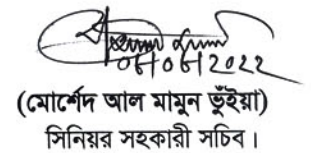 ০৮/০৬/2022
(মোর্শেদ আল মামুন ভুঁইয়া)
সিনিয়র সহকারী সচিব।